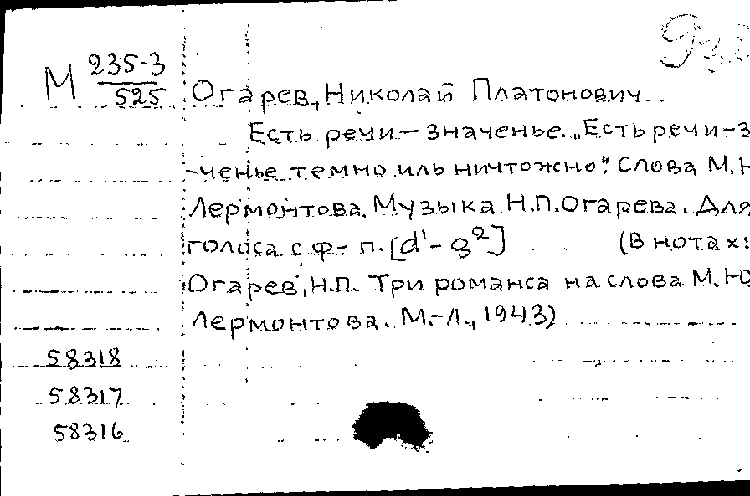 М 235-3
525
Огарев, Николай Платонович
Есть речи - значенье. „Есть речи - з
-ченье темно иль ничтожно". Слова М.
Лермонтова. Музыка Н.П. Огарева. Для
голоса с ф-п. [d¹ - g²] (В нотах:
Огарев, Н.П. Три романса на слова М. Ю
Лермонтова. М.-Л., 1943)
58318
58317
58316